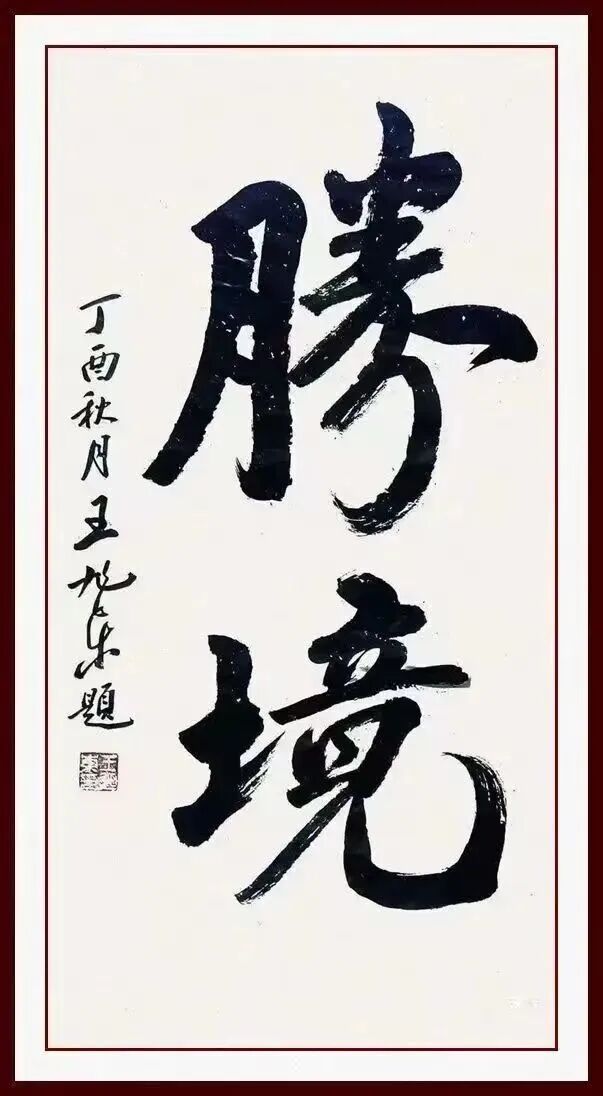 勝境
丁酉秋月王旭东題